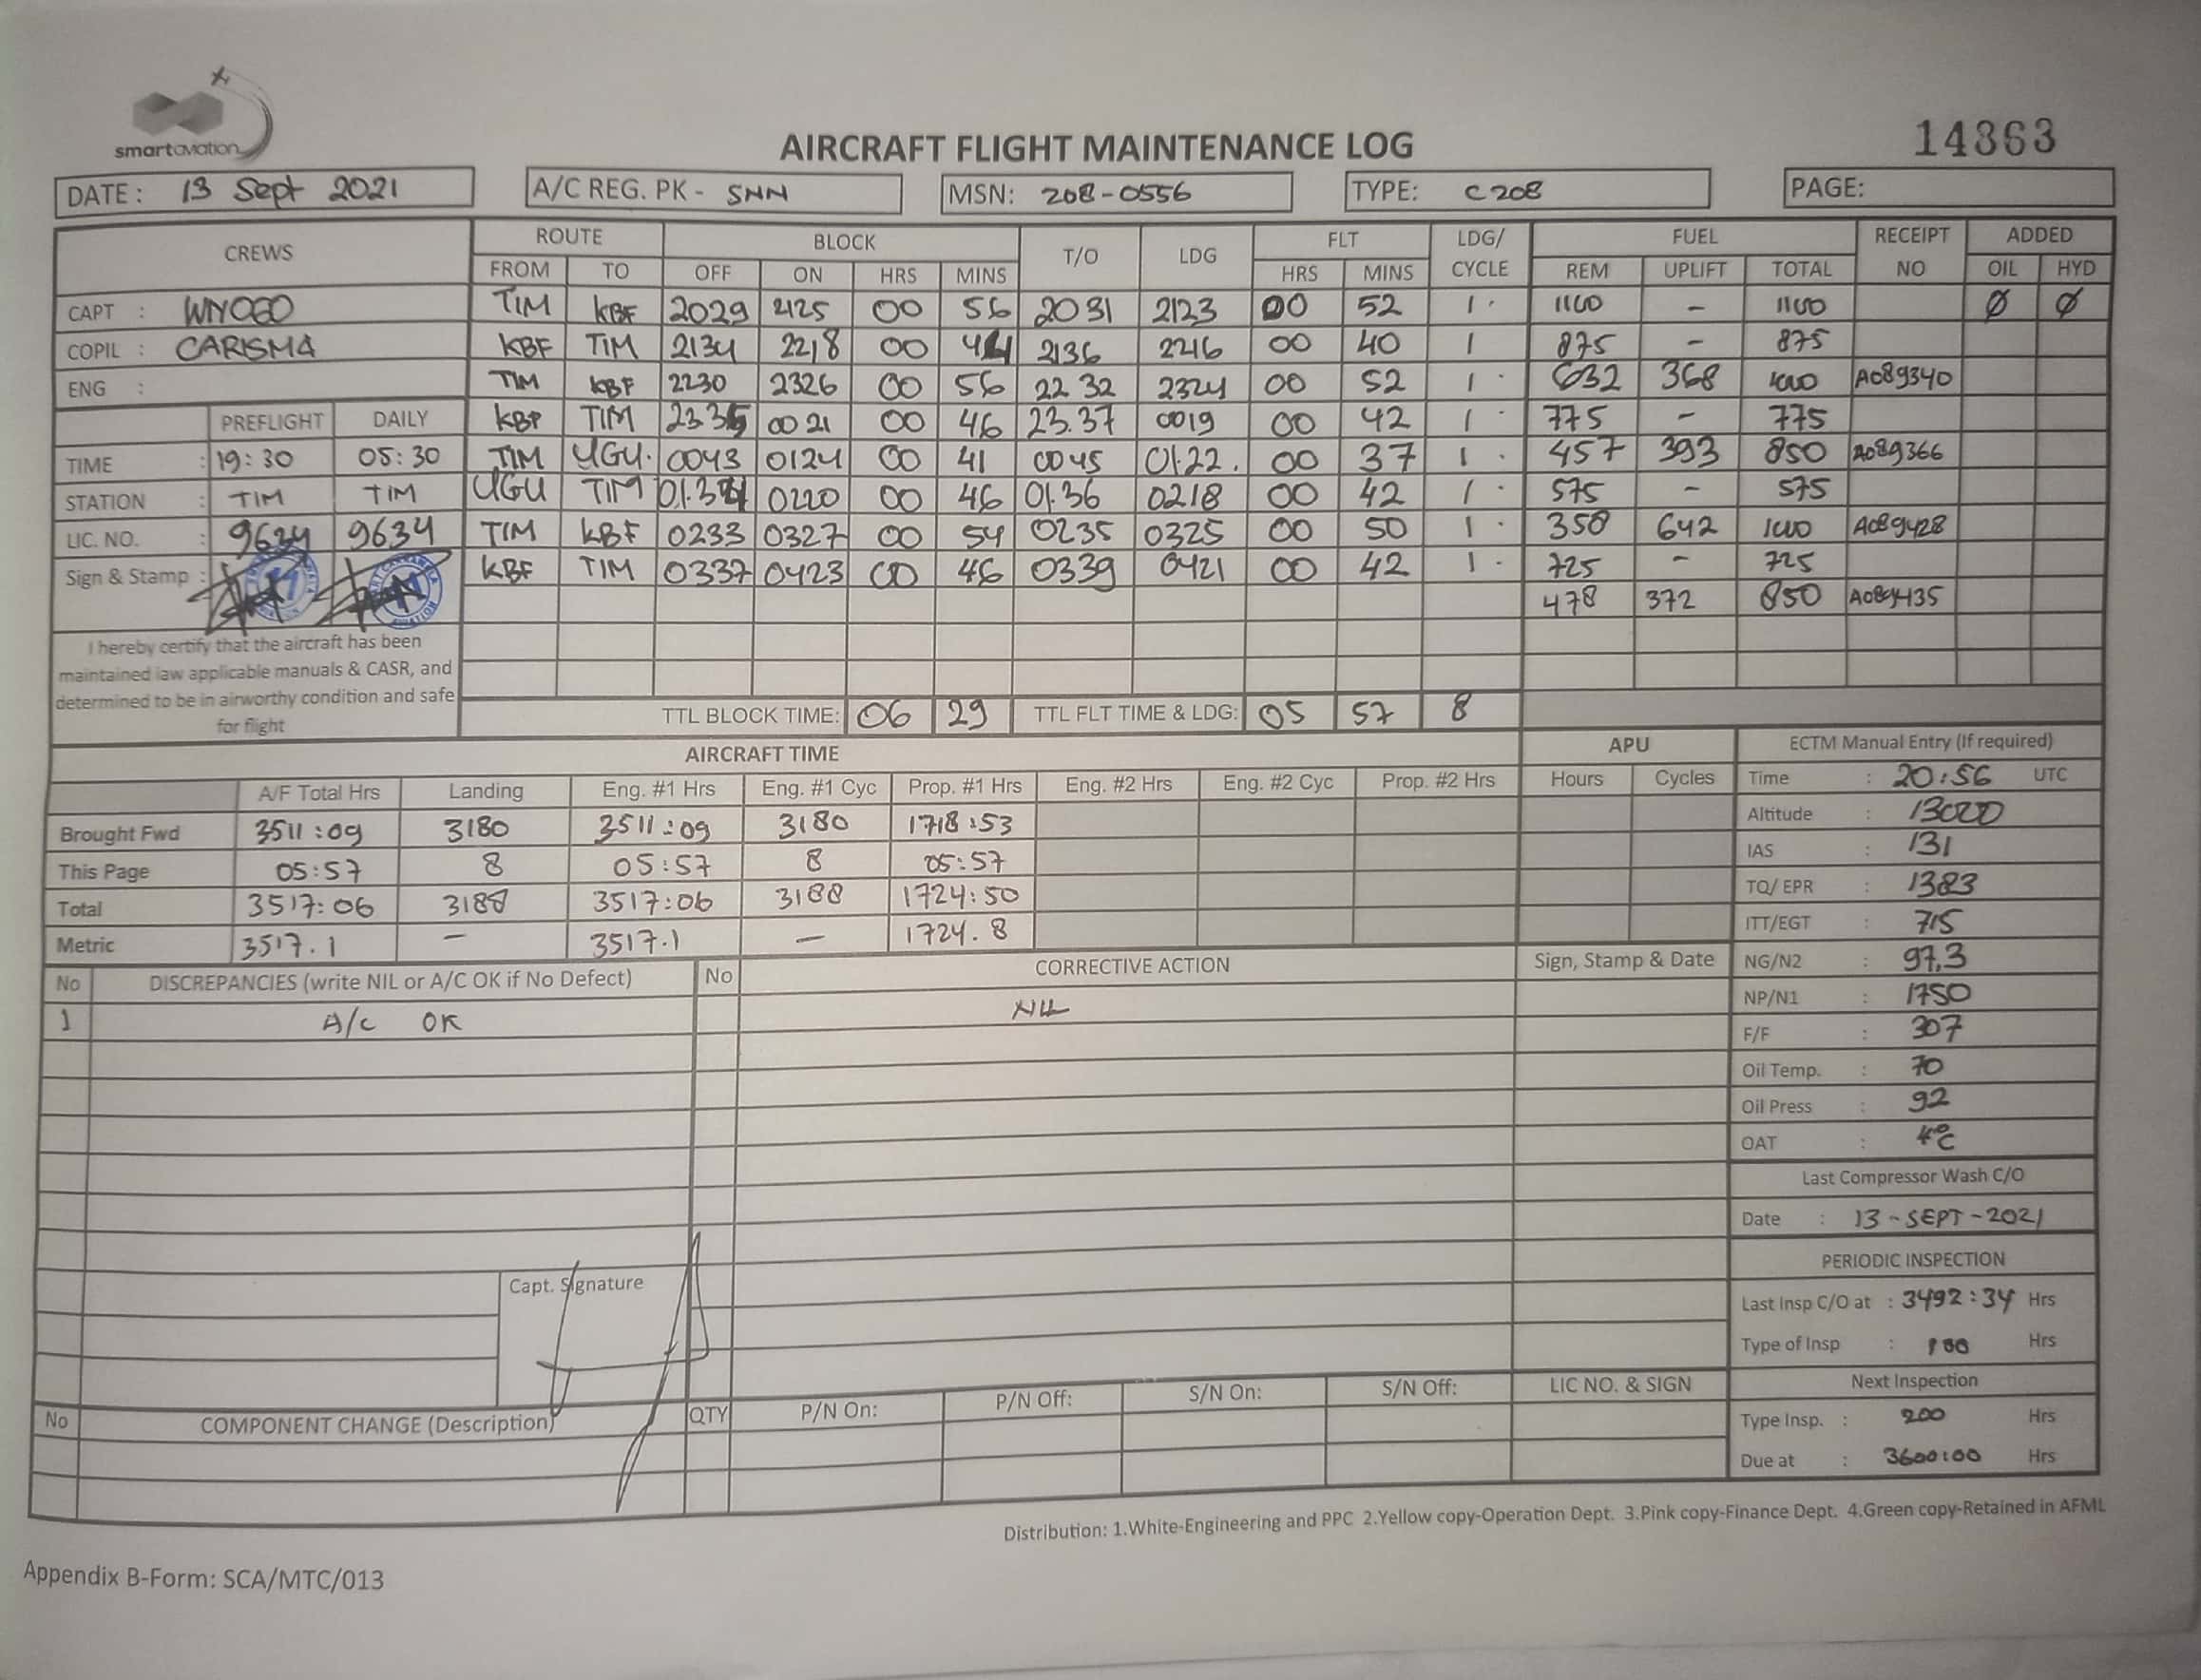 smartaviation
14363
AIRCRAFT FLIGHT MAINTENANCE LOG
DATE: 13 Sept 2021 A/C REG. PK - SNN MSN: 208-0556 TYPE: C208 PAGE:
CREWS ROUTE BLOCK T/O LDG FLT LDG/ CYCLE FUEL RECEIPT NO ADDED
FROM TO OFF ON HRS MINS HRS MINS REM UPLIFT TOTAL OIL HYD
CAPT : TIM KBF 2029 2125 00 56 2031 2123 00 52 1 1160 - 1160 Ø Ø
COPIL : CARISMA KBF TIM 2134 2218 00 44 2136 2216 00 40 1 875 - 875
ENG : TIM KBF 2230 2326 00 56 22 32 2324 00 52 1 632 368 1000 A089340
PREFLIGHT DAILY KBF TIM 2335 0021 00 46 23.37 0019 00 42 1 775 - 775
TIME : 19:30 05:30 TIM UGU. 0043 0124 00 41 0045 01.22. 00 37 1 457 393 850 A089366
STATION : TIM TIM UGU TIM 01.34 0220 00 46 01.36 0218 00 42 1 575 - 575
LIC. NO. : 9634 9634 TIM KBF 0233 0327 00 54 0235 0325 00 50 1 358 642 1000 A089428
Sign & Stamp : KBF TIM 0337 0423 00 46 0339 0421 00 42 1 725 - 725
478 372 850 A089435
I hereby certify that the aircraft has been
maintained iaw applicable manuals & CASR, and
determined to be in airworthy condition and safe
for flight
TTL BLOCK TIME: 06 29 TTL FLT TIME & LDG: 05 57 8
AIRCRAFT TIME APU ECTM Manual Entry (If required)
A/F Total Hrs Landing Eng. #1 Hrs Eng. #1 Cyc Prop. #1 Hrs Eng. #2 Hrs Eng. #2 Cyc Prop. #2 Hrs Hours Cycles Time : 20:56 UTC
Brought Fwd 3511:09 3180 3511:09 3180 1718:53 Altitude : 13000
This Page 05:57 8 05:57 8 05:57 IAS : 131
Total 3517:06 3188 3517:06 3188 1724:50 TQ/ EPR : 1383
Metric 3517.1 - 3517.1 - 1724.8 ITT/EGT : 715
No DISCREPANCIES (write NIL or A/C OK if No Defect) No CORRECTIVE ACTION Sign, Stamp & Date NG/N2 : 97,3
1 A/C OK NIL NP/N1 : 1750
F/F : 307
Oil Temp. : 70
Oil Press : 92
OAT : 4°C
Last Compressor Wash C/O
Date : 13-SEPT-2021
PERIODIC INSPECTION
Capt. Signature
Last Insp C/O at : 3492:34 Hrs
Type of Insp : 100 Hrs
Next Inspection
No COMPONENT CHANGE (Description) QTY P/N On: P/N Off: S/N On: S/N Off: LIC NO. & SIGN
Type Insp. : 200 Hrs
Due at : 3600:00 Hrs
Distribution: 1.White-Engineering and PPC 2.Yellow copy-Operation Dept. 3.Pink copy-Finance Dept. 4.Green copy-Retained in AFML
Appendix B-Form: SCA/MTC/013